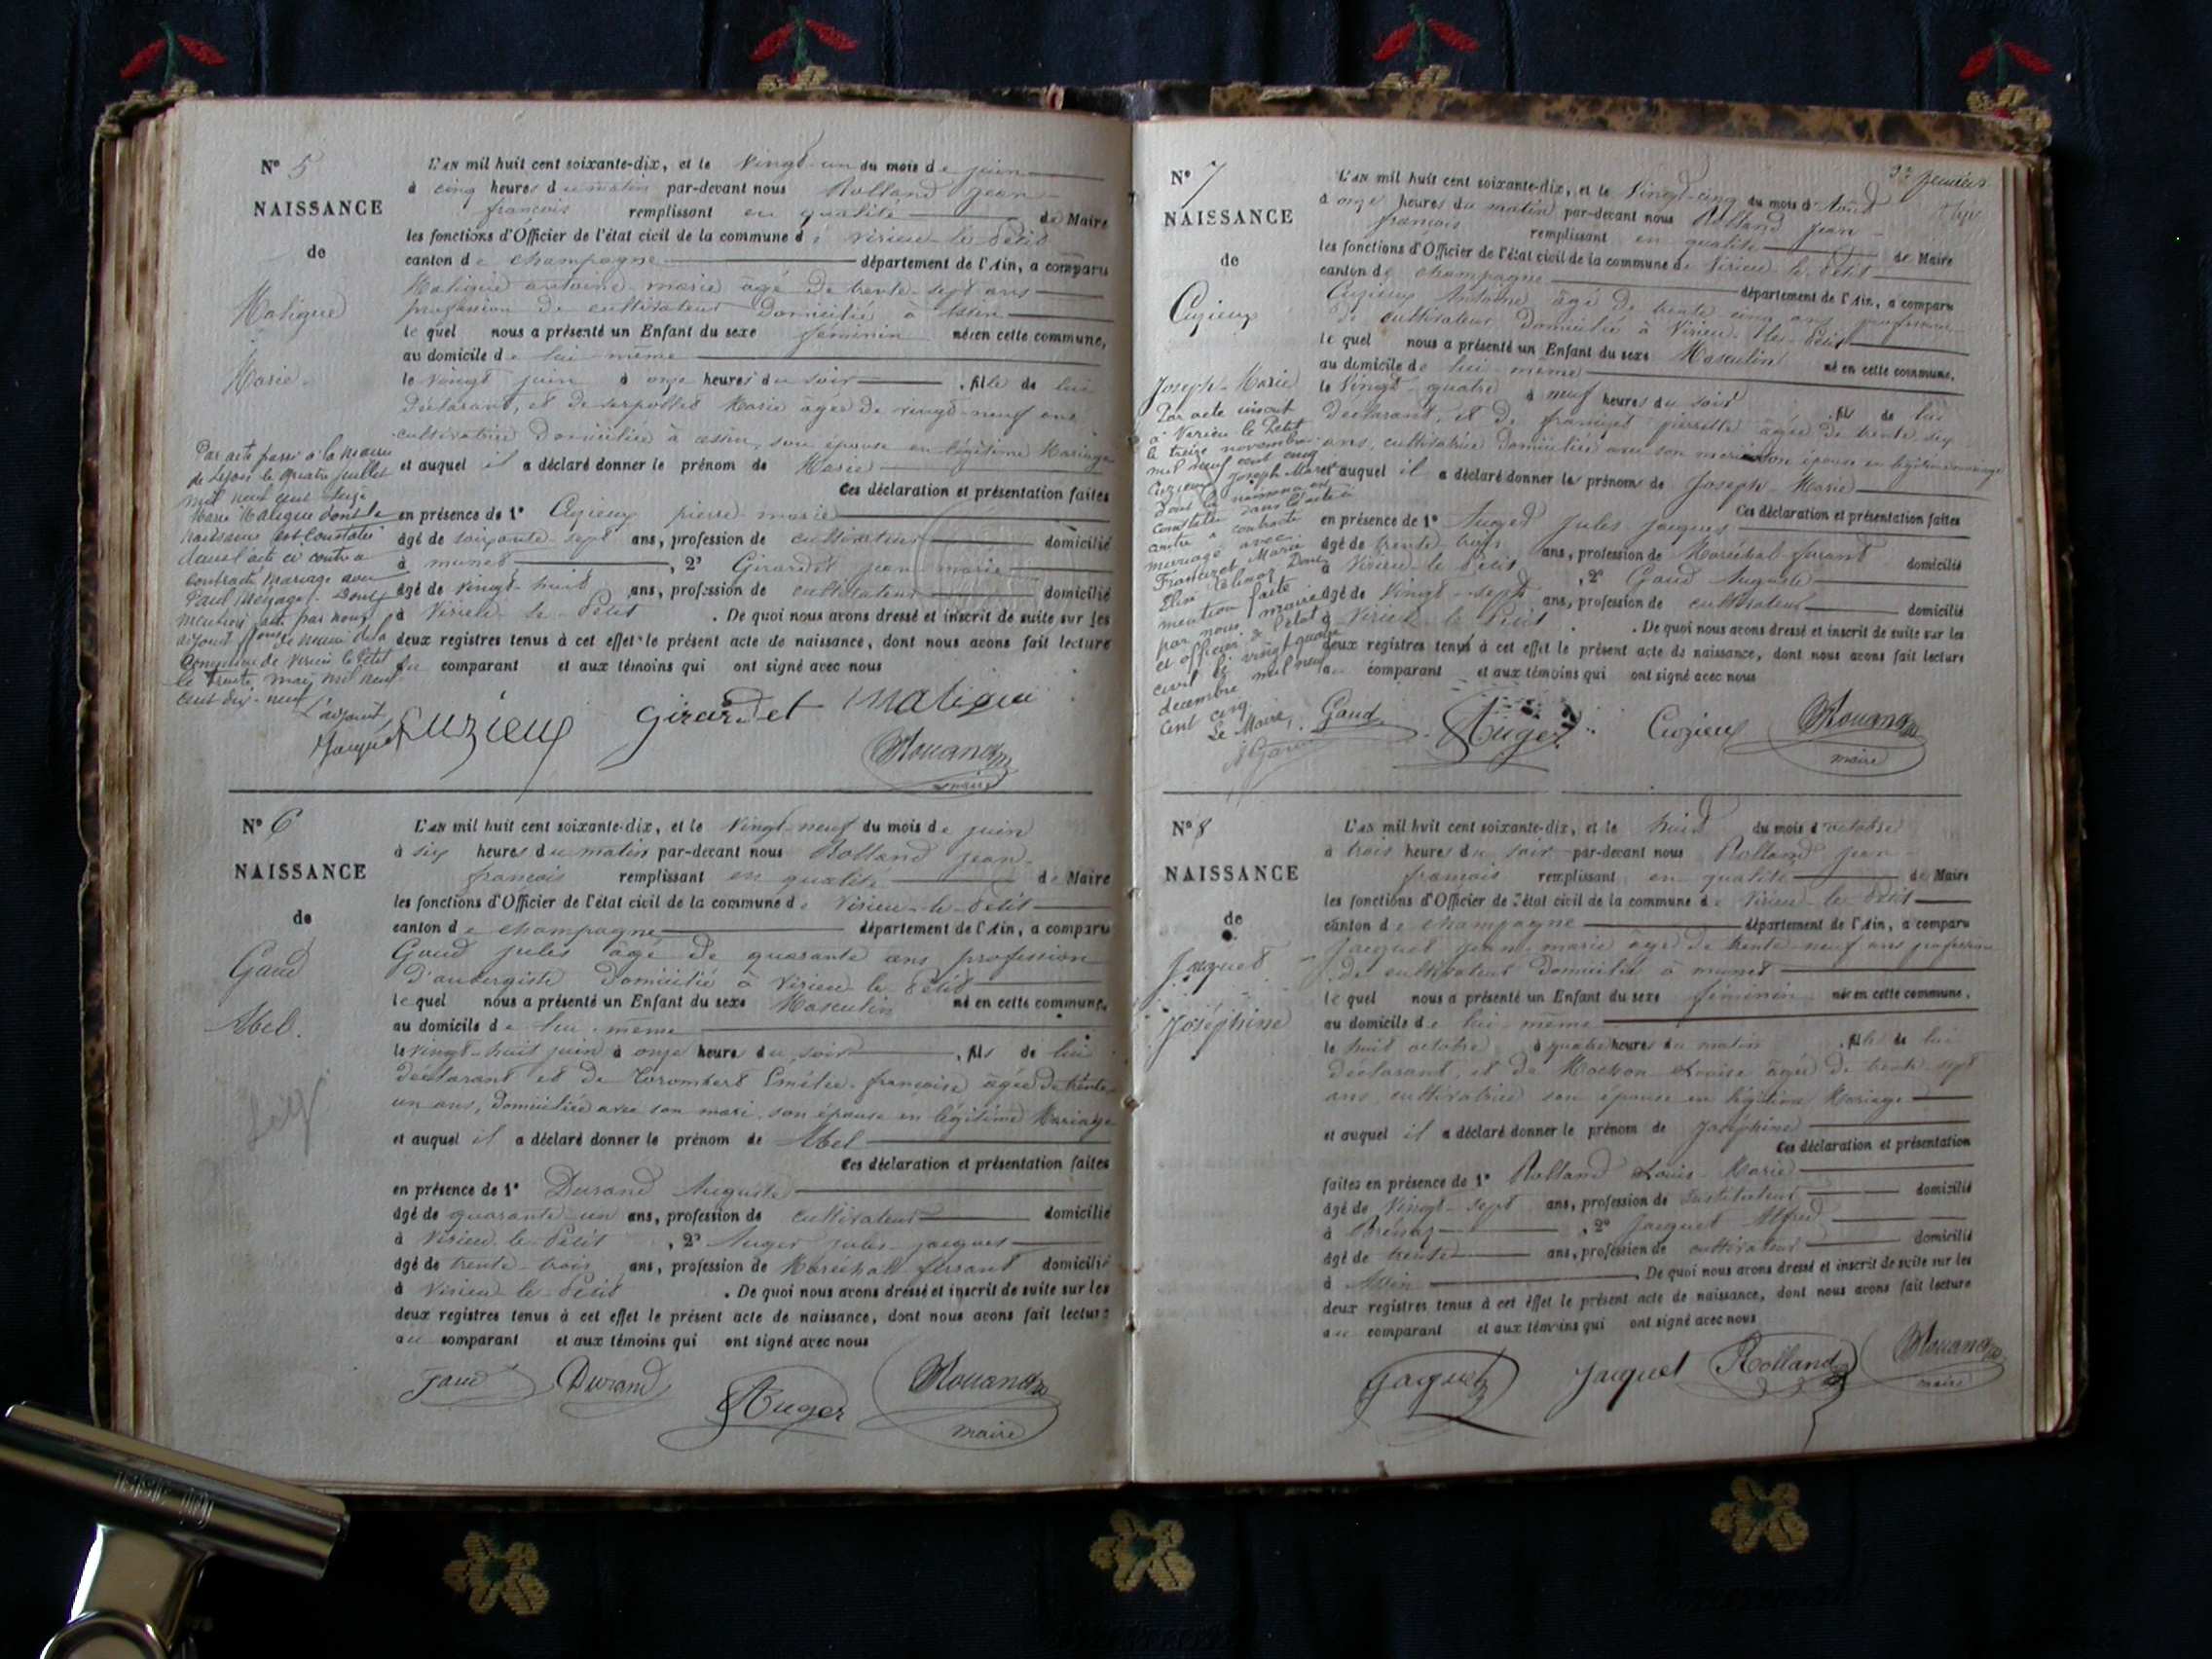 N° 5
NAISSANCE
de
Matigue
Marie.
L'AN mil huit cent soixante-dix, et le vingt-un du mois de juin
à cinq heures du matin par-devant nous Rolland jean
françois remplissant en qualité de Maire
les fonctions d'Officier de l'état civil de la commune de virieu-le-Petit
canton de champagne département de l'Ain, a comparu
Matigue antoine-marie âgé de trente-sept ans
profession de cultivateur domicilié à Assin
lequel nous a présenté un Enfant du sexe féminin née en cette commune,
au domicile de lui-même
le vingt juin à onze heures du soir, fille de lui
déclarant, et de serpollet Marie âgée de vingt-neuf ans
cultivatrice domiciliée à assin, son épouse en légitime Mariage
et auquel il a déclaré donner le prénom de Marie
Ces déclaration et présentation faites
en présence de 1° Cuzieux pierre-marie
âgé de soixante-sept ans, profession de cultivateur domicilié
à munet, 2° Girardet jean-marie
âgé de vingt-huit ans, profession de cultivateur domicilié
à Virieu-le-Petit. De quoi nous avons dressé et inscrit de suite sur les
deux registres tenus à cet effet le présent acte de naissance, dont nous avons fait lecture
au comparant et aux témoins qui ont signé avec nous
Par acte passé à la mairie
de Lyon le quatre juillet
mil neuf cent seize
Marie Matigue dont la
naissance est constatée
dans l'acte ci contre a
contracté mariage avec
Paul Dont
mention faite par nous
adjoint pour le maire de la
commune de Virieu le Petit
le trente mai mil neuf
cent dix-neuf
L'adjoint
Jacquet
Cuzieux Girardet Matigue
Rolland
maire
N° 6
NAISSANCE
de
Gaud
Abel.
L'AN mil huit cent soixante-dix, et le vingt-neuf du mois de juin
à six heures du matin par-devant nous Rolland jean
françois remplissant en qualité de Maire
les fonctions d'Officier de l'état civil de la commune de Virieu-le-Petit
canton de champagne département de l'Ain, a comparu
Gaud jules âgé de quarante ans profession
d'aubergiste domicilié à Virieu-le-Petit
lequel nous a présenté un Enfant du sexe Masculin né en cette commune,
au domicile de lui-même
le vingt-huit juin à onze heures du soir, fils de lui
déclarant et de Corombert Emélie-françoise âgée de trente
un ans, domiciliée avec son mari, son épouse en légitime Mariage
et auquel il a déclaré donner le prénom de Abel
Ces déclaration et présentation faites
en présence de 1° Durand Auguste
âgé de quarante-un ans, profession de cultivateur domicilié
à Virieu-le-Petit, 2° Auger jules-jacques
âgé de trente-trois ans, profession de Maréchal-ferrant domicilié
à Virieu-le-Petit. De quoi nous avons dressé et inscrit de suite sur les
deux registres tenus à cet effet le présent acte de naissance, dont nous avons fait lecture
au comparant et aux témoins qui ont signé avec nous
Gaud Durand Auger Rolland
maire
N° 7
NAISSANCE
de
Cuzieux
Joseph-Marie
L'AN mil huit cent soixante-dix, et le Vingt-cinq du mois d'Août
à onze heures du matin par-devant nous Rolland jean
françois remplissant en qualité de Maire
les fonctions d'Officier de l'état civil de la commune de Virieu-le-Petit
canton de champagne département de l'Ain, a comparu
Cuzieux Antoine âgé de trente cinq ans profession
de cultivateur domicilié à Virieu-le-Petit
lequel nous a présenté un Enfant du sexe Masculin né en cette commune,
au domicile de lui-même
le Vingt-quatre à neuf heures du soir, fils de lui
déclarant, et de françist pierrette âgée de trente six
ans, cultivatrice domiciliée avec son mari son épouse en légitime mariage
et auquel il a déclaré donner les prénoms de Joseph-Marie
Ces déclaration et présentation faites
en présence de 1° Auger Jules Jacques
âgé de trente-trois ans, profession de Maréchal-ferrant domicilié
à Virieu-le-Petit, 2° Gaud Auguste
âgé de vingt-sept ans, profession de cultivateur domicilié
à Virieu-le-Petit. De quoi nous avons dressé et inscrit de suite sur les
deux registres tenus à cet effet le présent acte de naissance, dont nous avons fait lecture
au comparant et aux témoins qui ont signé avec nous
Par acte inscrit
à Virieu le Petit
le treize novembre
mil neuf cent cinq
Cuzieux Joseph Marie
dont la naissance est
constatée dans l'acte ci
contre a contracté
mariage avec
Marie
Elisa Dont
mention faite
par nous maire
et officier de l'état
civil le vingt quatre
décembre mil neuf
cent cinq
Le Maire,
Gaud Auger Cuzieux Rolland
maire
N° 8
NAISSANCE
de
Jacquet
Joséphine
L'AN mil huit cent soixante-dix, et le huit du mois d'octobre
à trois heures du soir par-devant nous Rolland jean
françois remplissant en qualité de Maire
les fonctions d'Officier de l'état civil de la commune de Virieu-le-Petit
canton de champagne département de l'Ain, a comparu
Jacquet jean-marie âgé de trente-neuf ans profession
de cultivateur domicilié à munet
lequel nous a présenté un Enfant du sexe féminin née en cette commune,
au domicile de lui-même
le huit octobre à quatre heures du matin, fille de lui
déclarant, et de Mochon Louise âgée de trente-sept
ans cultivatrice son épouse en légitime Mariage
et auquel il a déclaré donner le prénom de Joséphine
Ces déclaration et présentation
faites en présence de 1° Rolland Louis-Marie
âgé de vingt-sept ans, profession de Instituteur domicilié
à Brénaz, 2° Jacquet Alfred
âgé de trente ans, profession de cultivateur domicilié
à Assin. De quoi nous avons dressé et inscrit de suite sur les
deux registres tenus à cet effet le présent acte de naissance, dont nous avons fait lecture
au comparant et aux témoins qui ont signé avec nous
Jacquet Jacquet Rolland Rolland
maire